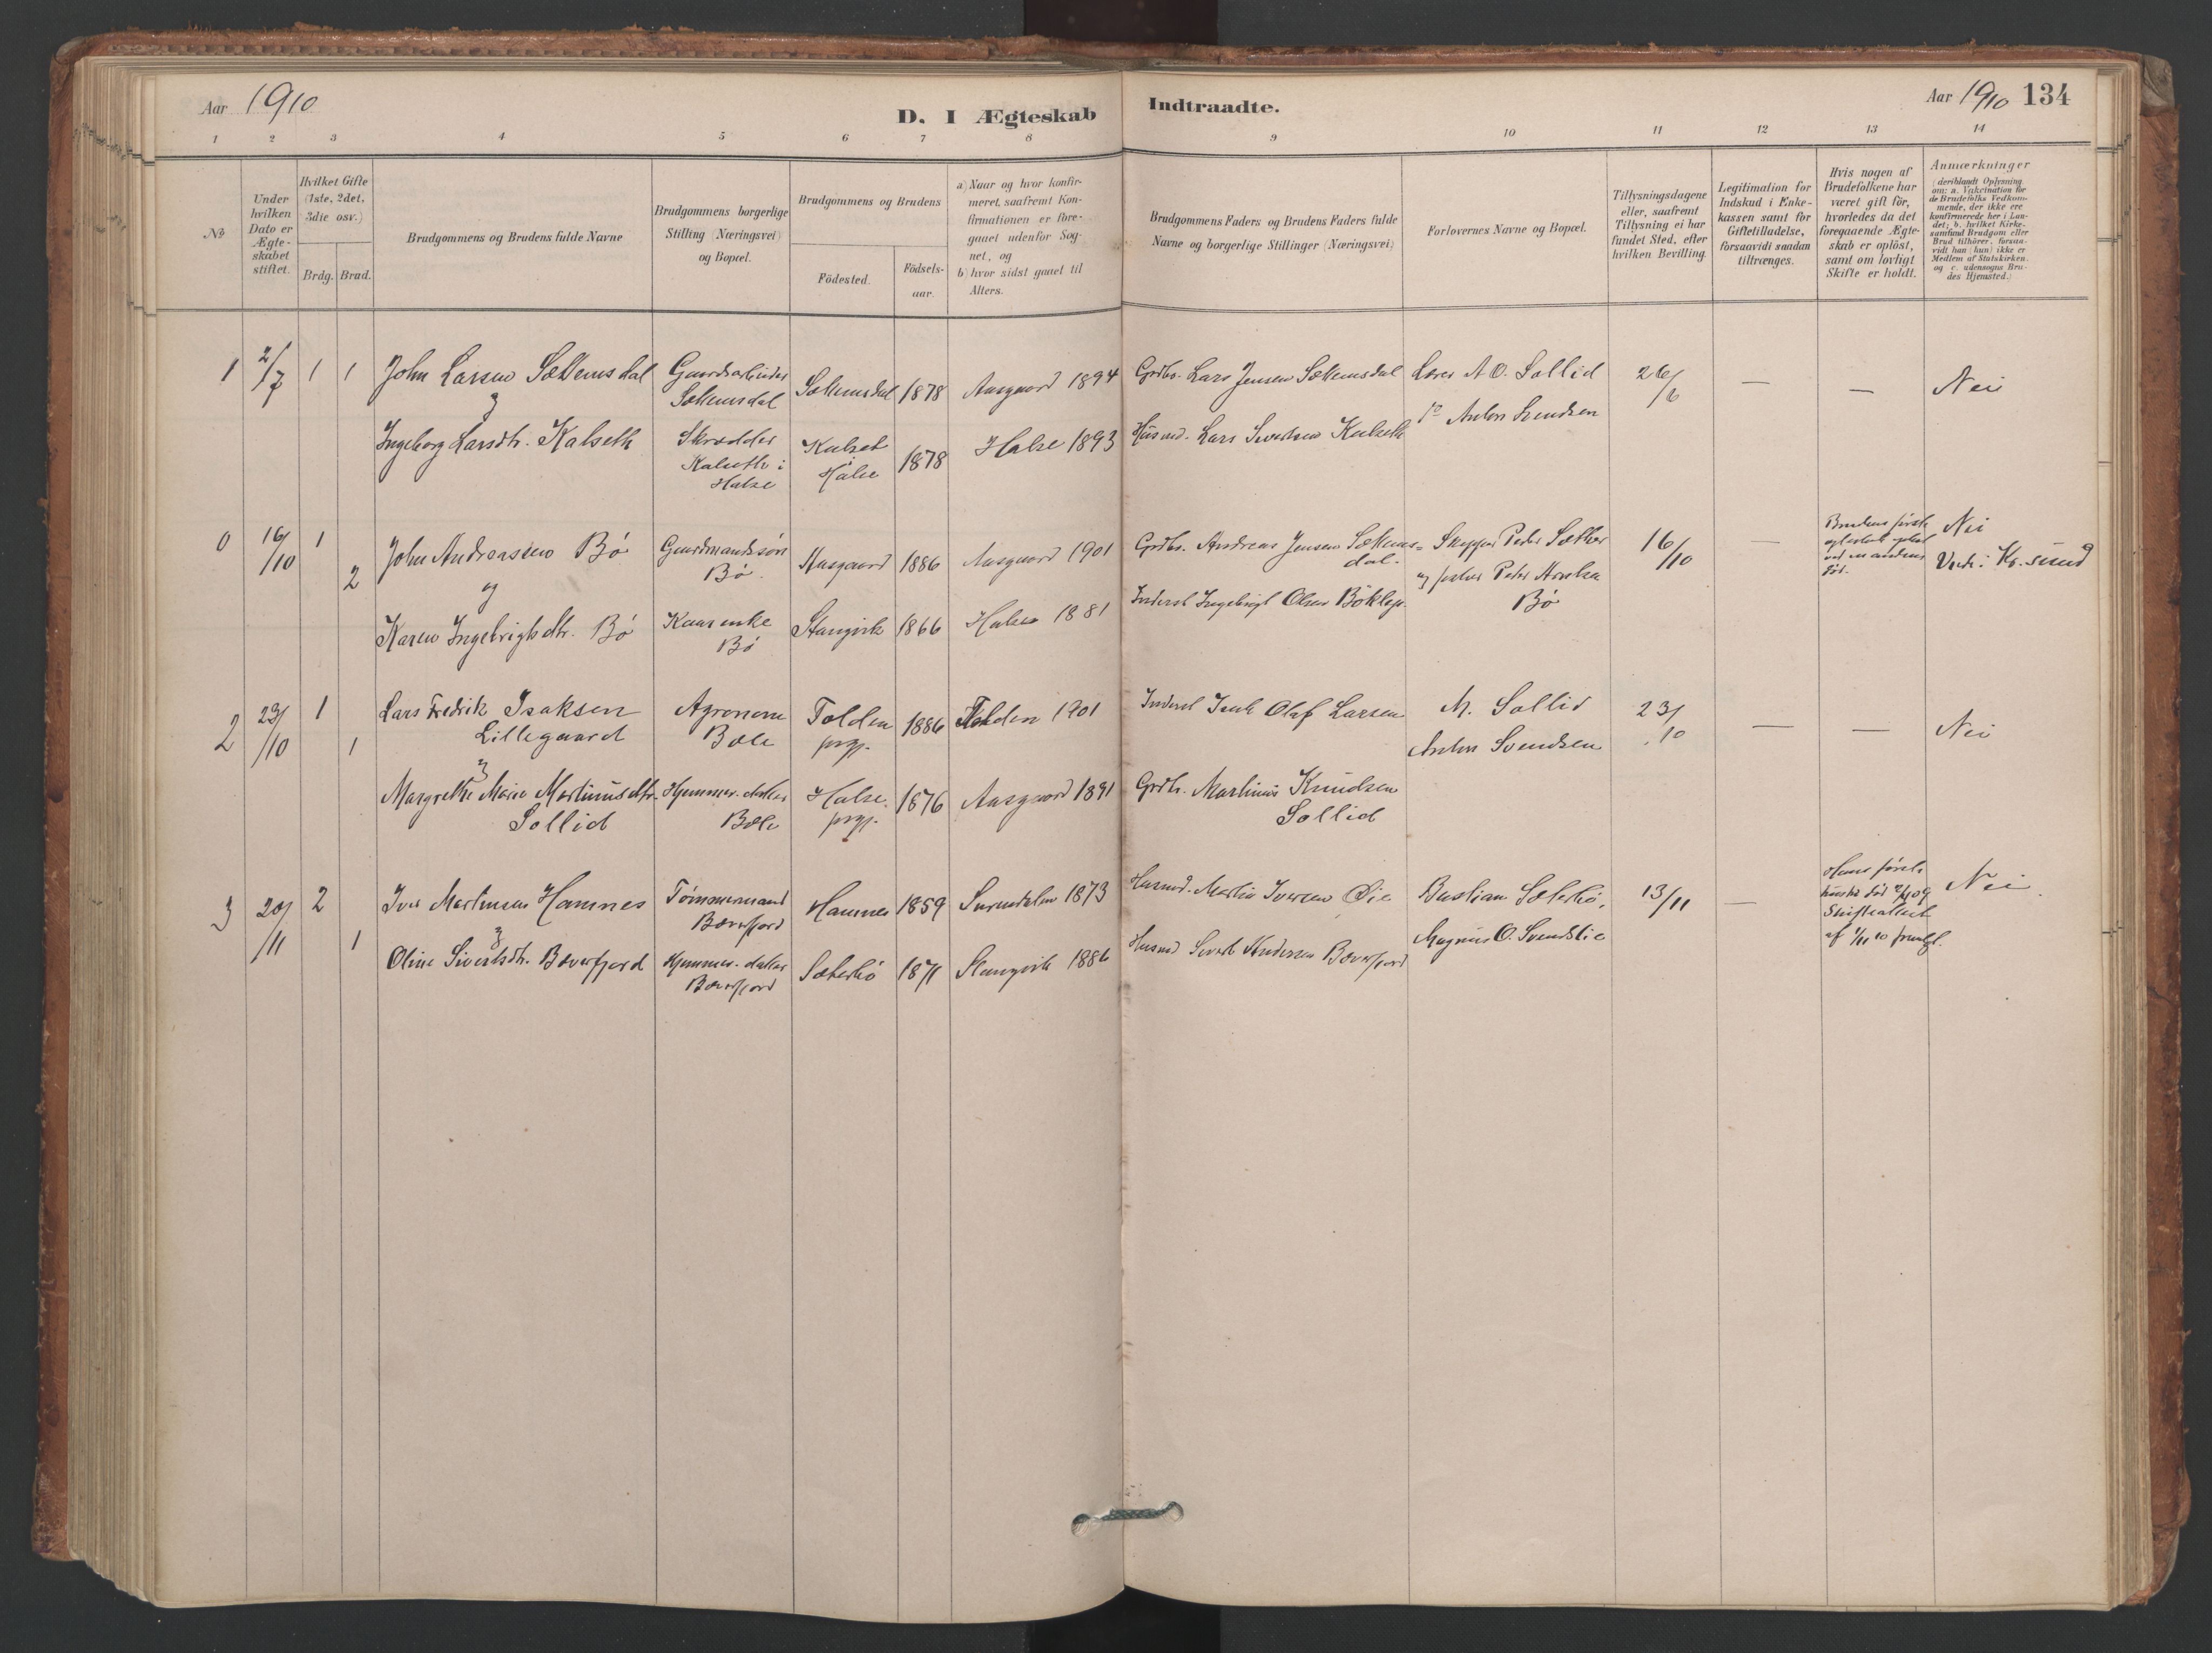 Aar 1910
D. I Ægteskab Indtraadte.
Aar 1910 134
1 2 3 4 5 6 7 8 9 10 11 12 13 14
No
Under hvilken Dato er Ægteskabet stiftet.
Hvilket Gifte (1ste, 2det, 3die osv.)
Brdg. Brud.
Brudgommens og Brudens fulde Navne
Brudgommens borgerlige Stilling (Næringsvei) og Bopæl.
Brudgommens og Brudens
Födested.
Födselsaar.
a) Naar og hvor konfirmeret, saafremt Konfirmationen er foregaaet udenfor Sognet, og
b) hvor sidst gaaet til Alters.
Brudgommens Faders og Brudens Faders fulde Navne og borgerlige Stillinger (Næringsvei)
Forlovernes Navne og Bopæl.
Tillysningsdagene eller, saafremt Tillysning ei har fundet Sted, efter hvilken Bevilling.
Legitimation for Indskud i Enkekassen samt for Giftetilladelse, forsaavidt saadan tiltrænges.
Hvis nogen af Brudefolkene har været gift för, hvorledes da det foregaaende Ægteskab er oplöst, samt om lovligt Skifte er holdt.
Anmærkninger
(deriblandt Oplysning om: a. Vakcination for de Brudefolks Vedkommende, der ikke ere konfirmerede her i Landet; b. hvilket Kirkesamfund Brudgom eller Brud tilhörer, forsaavidt han (hun) ikke er Medlem af Statskirken, og c. udensogns Brudes Hjemsted.)
1 2/7 1 1 John Larsen Sættemsdal Gaardarbeider Sættemsdal Sættemsdal 1878 Aasgaard 1894 Grdbr. Lars Jensen Sættemsdal Lærer A. O. Sollid 26/6 — — Nei
Ingeborg Larsdtr. Kalseth Skrædder Kalseth i Halse Kalset Halse 1878 Halse 1893 Husmd. Lars Sivertsen Kalseth Anton Svendsen
0 16/10 1 2 John Andreassen Bø Gaardmandssøn Bø Aasgaard 1886 Aasgaard 1901 Grdbr. Andreas Jensen Sættemsdal. Skipper Peder Sæther 16/10 — Brudens første ægteskab opløst ved mandens død. Nei
og
Karen Ingebrigtsdtr. Bø Kaarenke Bø Stangvik 1866 Halse 1881 Inderst Ingebrigt Olsen og Peder Bø
Kr.sund
2 23/10 1 1 Lars Fredrik Isaksen Lillegaard Agronom Bæle Tolden prgj. 1886 Tolden 1901 Inderst Isak Olaf Larsen M. Sollid 23/10 — — Nei
Anton Svendsen
Margrethe Marie Martinusdtr. Sollid Bæle Halse prgj. 1876 Aasgaard 1891 Grdbr. Martinus Knudsen Sollid
3 20/11 2 1 Iver Martinsen Hamnes Tømmermand Bæverfjord Hamnes 1859 Surendalen 1873 Husmd. Martin Iversen Øie Bastian Sæterbø, 13/11 — Hans første hustru død Nei
Oline Sivertsdtr. Bæverfjord Bæverfjord Sæterbø 1871 Stangvik 1886 Husmd Sivert Andersen Bæverfjord Magnus O. Svendslie